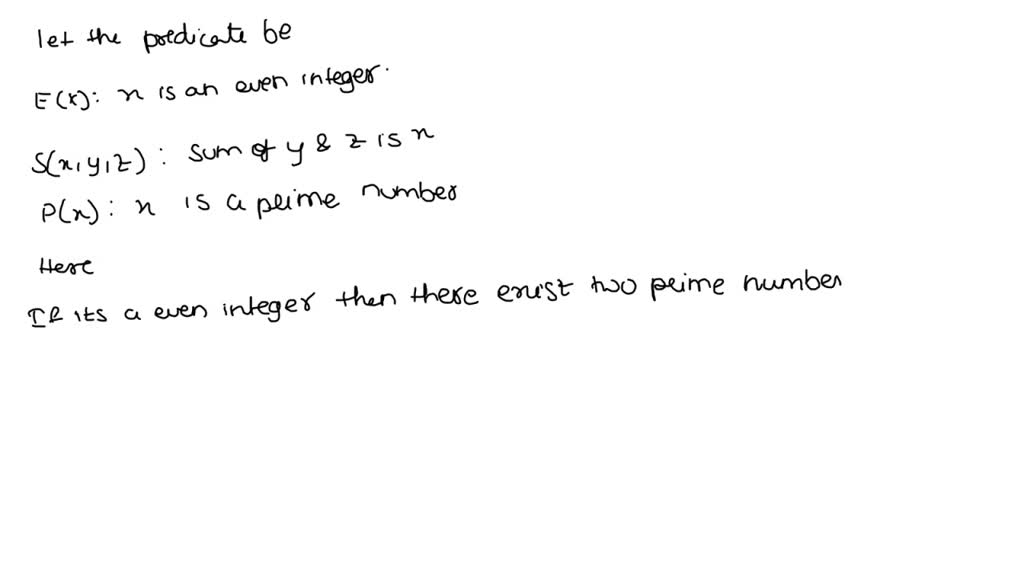 let the predicate be
E(x): x is an even integer.
S(x,y,z): sum of y & z is x
P(x): x is a prime number
Here
If its a even integer then there exist two prime number